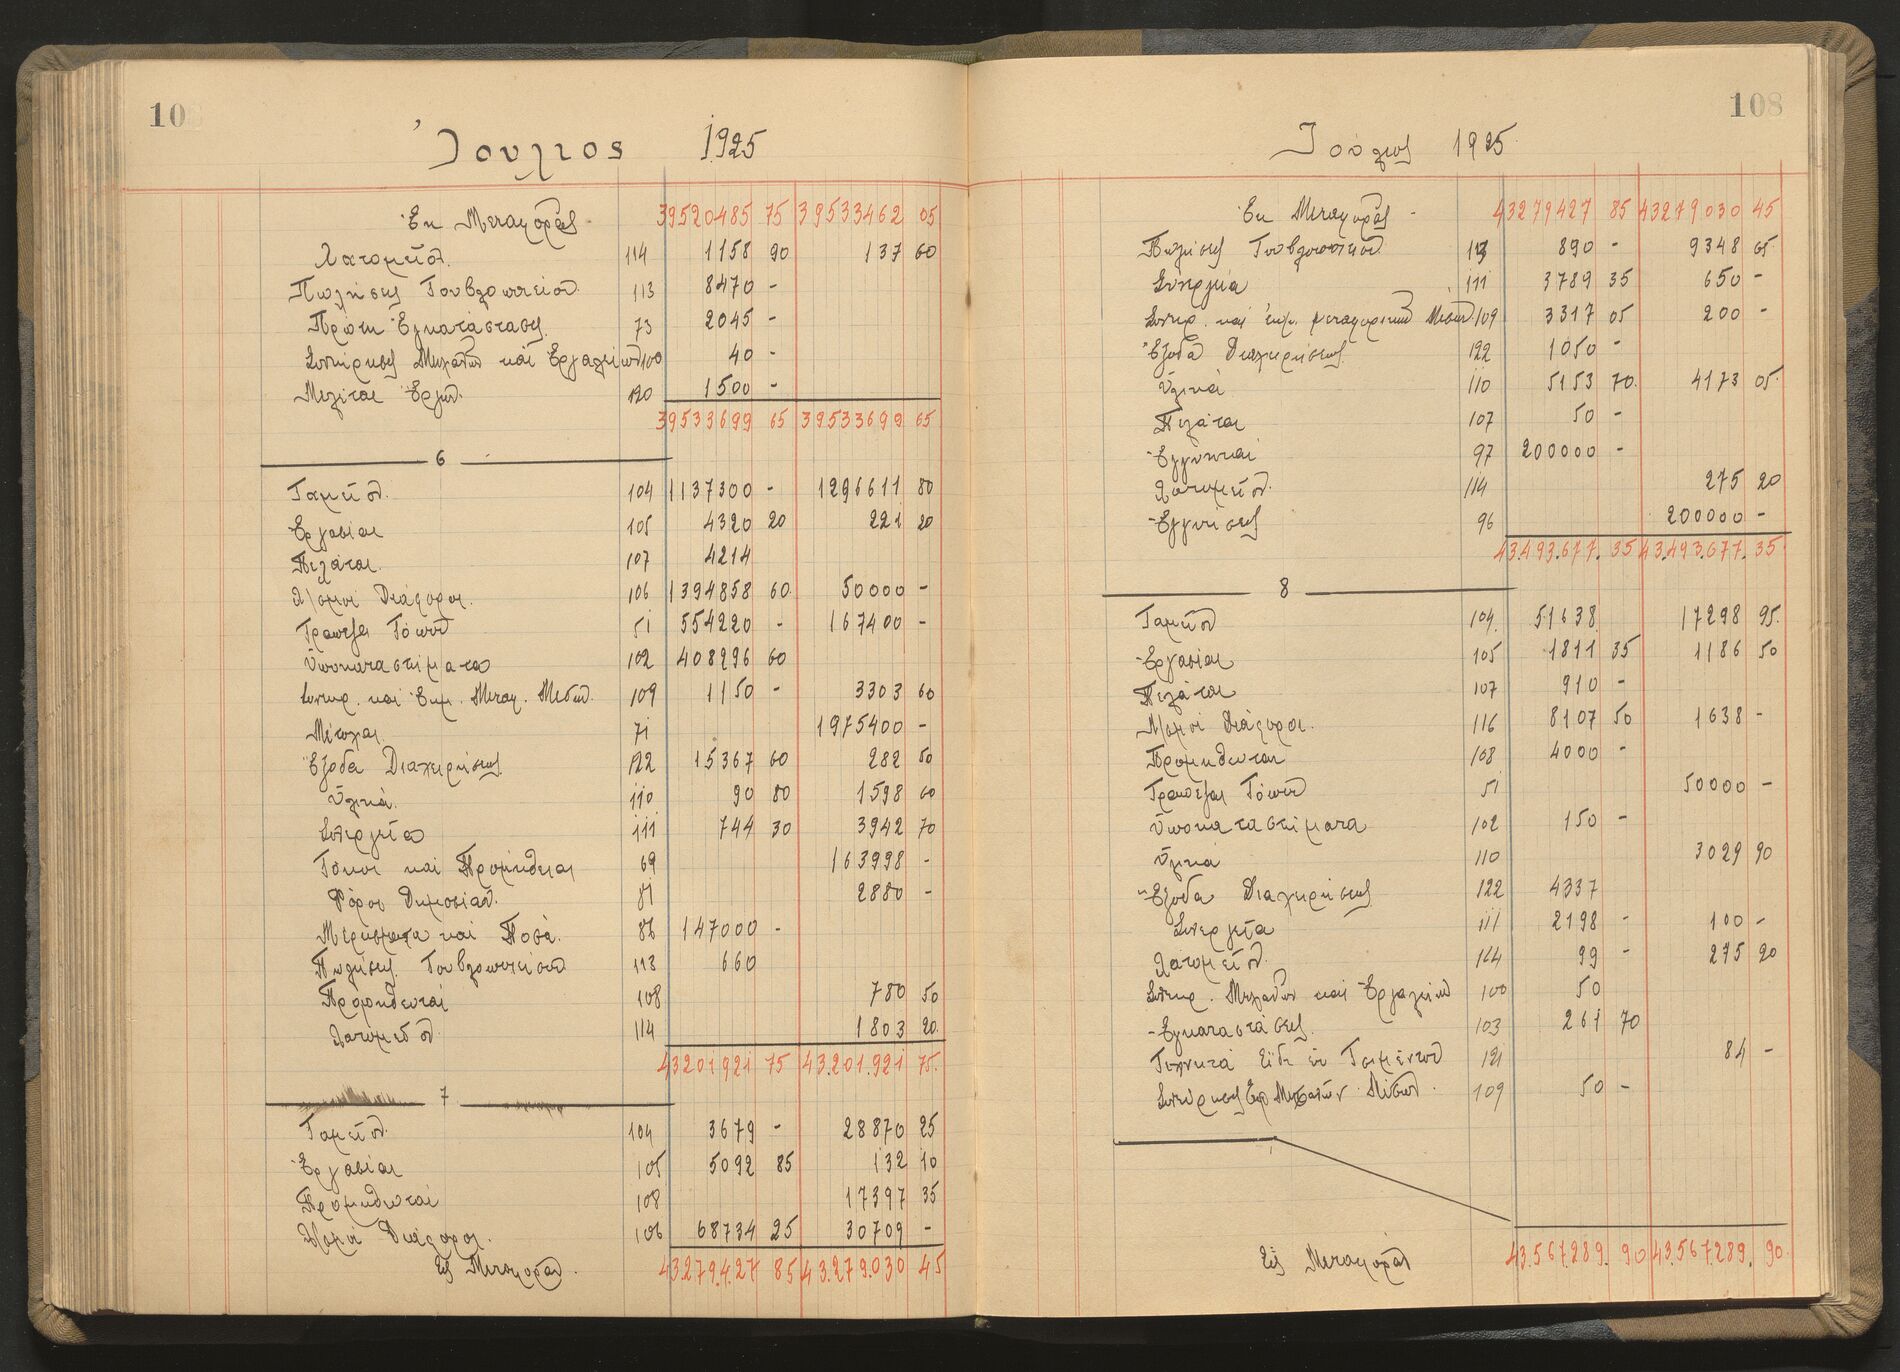 10
Ἰούλιος 1925
Ἐκ Μεταφορᾶς 39520485 75 39533462 05
Λατομεῖον 114 1158 90 137 60
Πωλήσεις Τουβλοποιείου 113 8470 -
Πρώτη Ἐγκατάστασις 73 2045 -
Συντήρησις Μηχανῶν καὶ Ἐργαλείων 100 40 -
Μελέται Ἔργων 120 1500 -
39533699 65 39533699 65
6
Ταμεῖον 104 1137300 - 1296611 80
Ἐργασίαι 105 4320 20 221 20
Πελάται 107 4214
Λ/σμοί Διάφοροι 106 1394858 60 50000 -
Τράπεζαι Τόπου 51 554220 - 167400 -
Ὑποκαταστήματα 102 408296 60
Συντηρ. καὶ Ἐκμ. Μεταφ. Μέσων 109 1150 - 3303 60
Μέτοχοι 71 1975400 -
Ἔξοδα Διαχειρήσεως 122 15367 60 282 50
Ὑλικά 110 90 80 1598 60
Συνεργεῖα 111 744 30 3942 70
Τόκοι καὶ Προμήθειαι 69 163998 -
Φόροι Δημοσίου 81 2880 -
Μερίσματα καὶ Ποσά 86 147000 -
Πωλήσεις Τουβλοποιείου 113 660
Προμηθευταί 108 780 50
Λατομεῖον 114 1803 20
43201921 75 43.201.921 75
7
Ταμεῖον 104 3679 - 28870 25
Ἐργασίαι 105 5092 85 132 10
Προμηθευταί 108 17397 35
Λ/σμοί Διάφοροι 106 68734 25 30709 -
Εἰς Μεταφοράν 43.279.427 85 43.279.030 45
108
Ἰούλιος 1925
Ἐκ Μεταφορᾶς 43279427 85 43279030 45
Πωλήσεις Τουβλοποιείου 113 890 - 9348 65
Συνεργεῖα 111 3789 35 650 -
Συντηρ. καὶ ἐκμ. μεταφορικῶν Μέσων 109 3317 05 200 -
Ἔξοδα Διαχειρήσεως 122 1050 -
Ὑλικά 110 5153 70 4173 05
Πελάται 107 50 -
Ἐγγυηταί 97 200000 -
Λατομεῖον 114 275 20
Ἐγγυήσεις 96 200000 -
43.493.677. 35 43.493.677. 35
8
Ταμεῖον 104 51638 17298 95
Ἐργασίαι 105 1811 35 1186 50
Πελάται 107 910 -
Λ/σμοί Διάφοροι 116 8107 50 1638 -
Προμηθευταί 108 4000 -
Τράπεζαι Τόπου 51 50000 -
Ὑποκαταστήματα 102 150 -
Ὑλικά 110 3029 90
Ἔξοδα Διαχειρήσεως 122 4337
Συνεργεῖα 111 2198 - 100 -
Λατομεῖον 114 99 - 275 20
Συντηρ. Μηχανῶν καὶ Ἐργαλείων 100 50
Ἐγκαταστάσεις 103 261 70
Τεχνητά Εἴδη ἐκ Τσιμέντου 121 84 -
Συντήρησις Μέσων 109 50 -
Εἰς Μεταφοράν 43.567.289. 90 43.567.289. 90